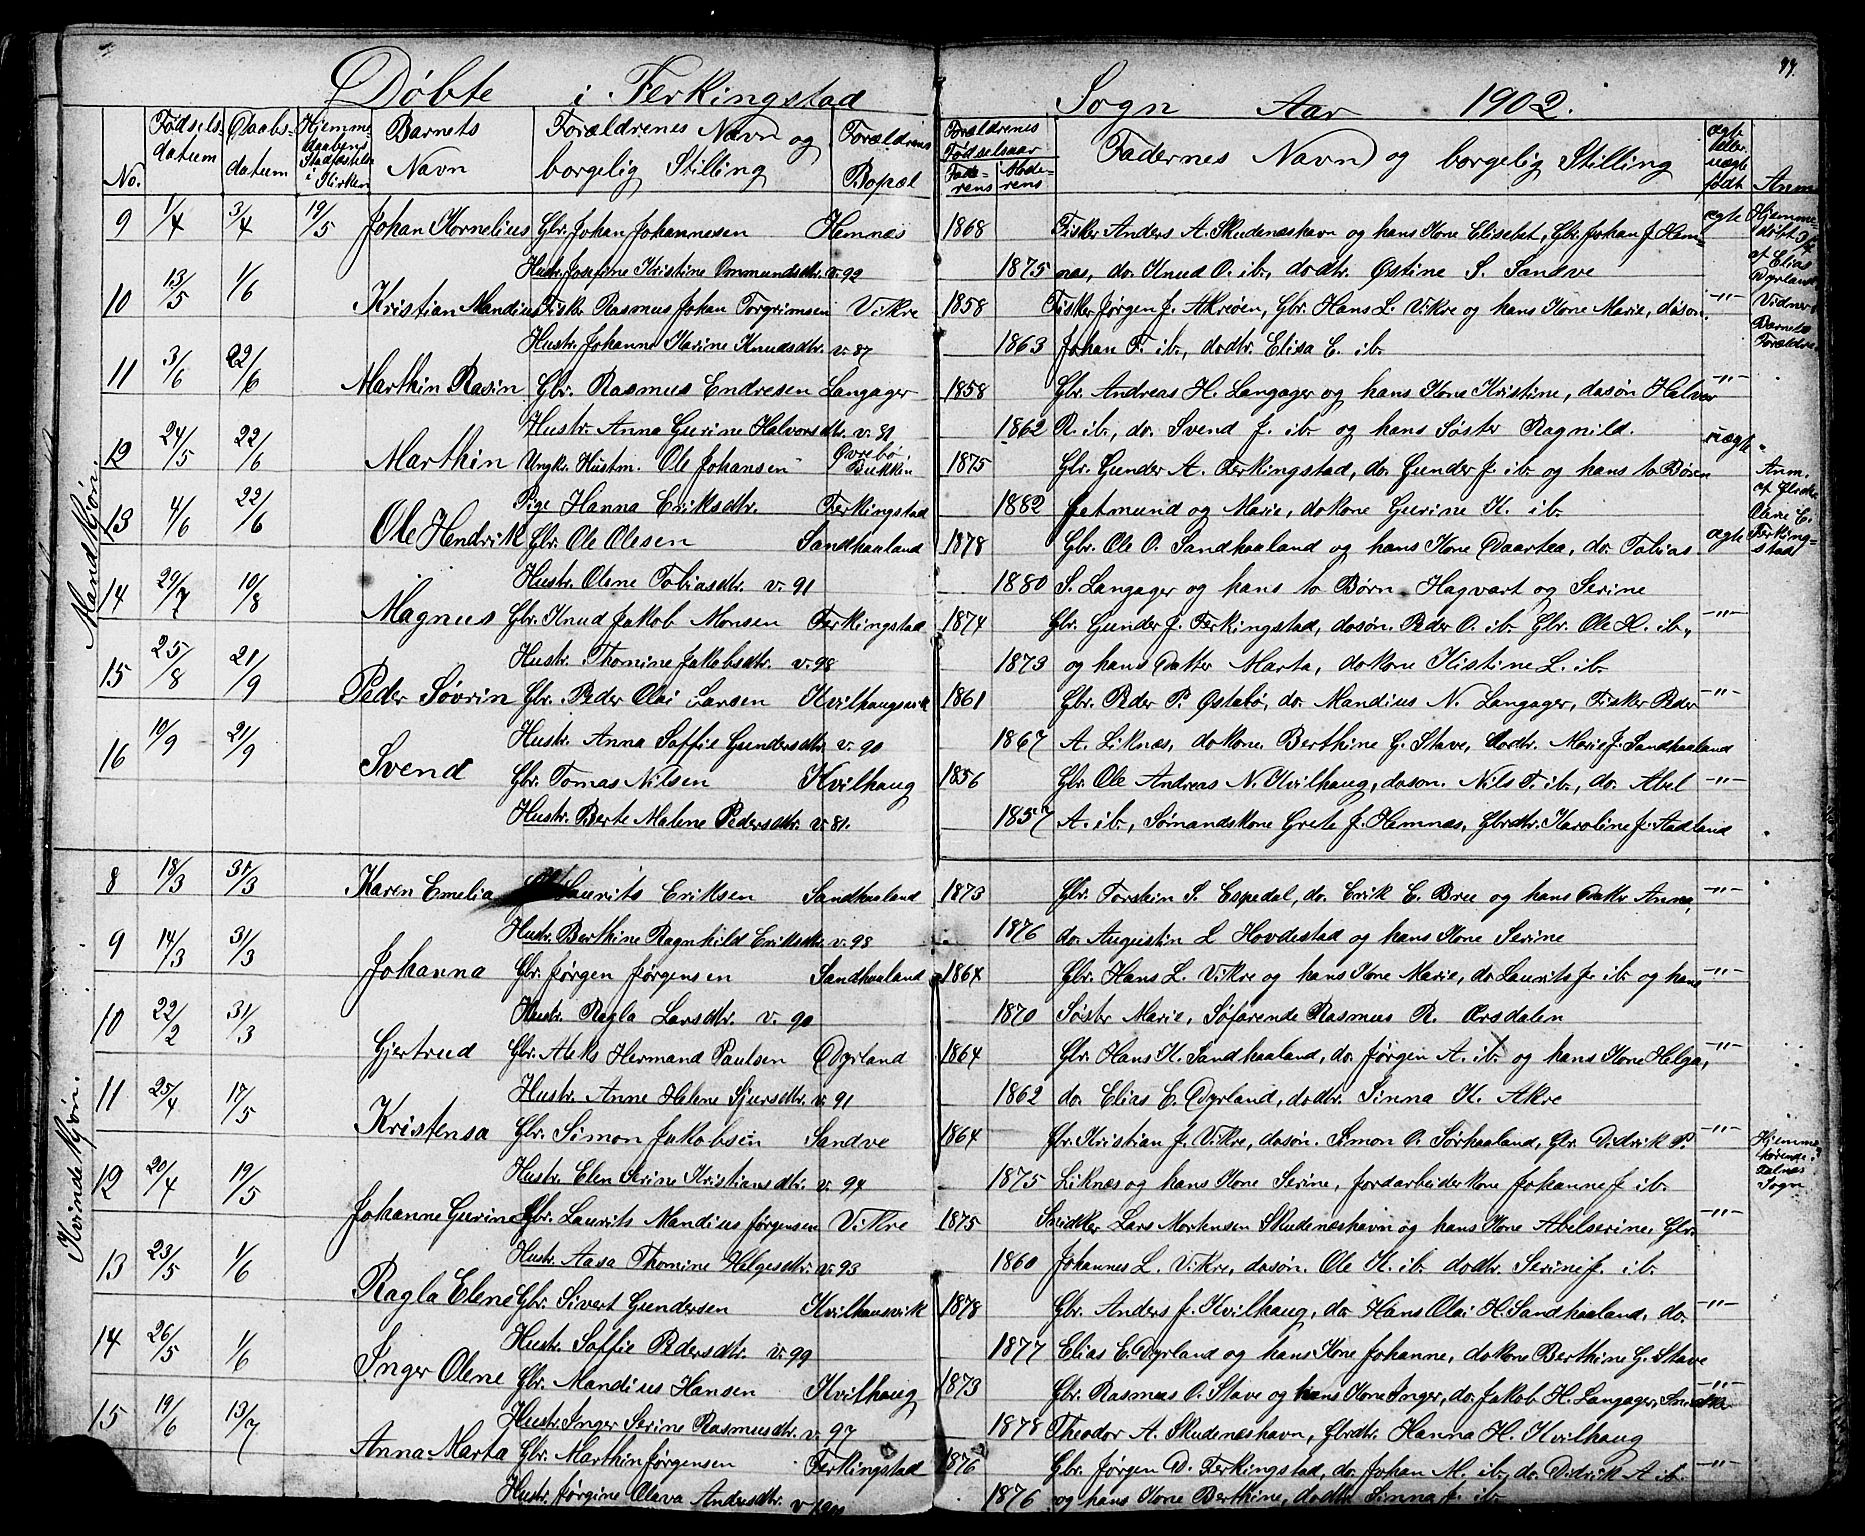 99.
Døbte i Ferkingstad Sogn Aar 1902.
No. Fødsels datum Daabs datum Hjemme daabens Stadfæstelse i Kirken Barnets Navn Forældrenes Navn og borgelig Stilling Forældrenes Bopæl Forældrenes Fødselsaar Faderens Moderens Faddernes Navn og borgelig Stilling ægte eller uægte født Anm
Mandkjøn.
9 1/4 3/4 19/5 Johan Kornelius Gbr. Johan Johannesen Hemnæs 1868 Fisker Anders A. Skudeneshavn og hans Kone Elisebet, Gbr. Johan J. Hem- ægte
Hustr. Josefine Kristine Ommundsdtr. v. 92 1875 næs, do. Knud O. ib., dodtr. Østine S. Sandve
10 13/5 1/6 Kristian Mandius Fisker Rasmus Johan Torgrimsen Vikre 1858 Fisker Jørgen J. Akreøen, Gbr. Hans L. Vikre og hans Kone Marie, dosøn. -"-
Hustr. Johanne Karine Knudsdtr. v. 87 1863 Johan T. ib., dodtr. Elisa E. ib.
Hjemme-
døbt 3/4
af Elias
Dyrland
Vidner:
Barnets
Forældre
11 3/6 22/6 Marthin Rasin Gbr. Rasmus Endresen Langager 1858 Gbr. Andreas H. Langager og hans Kone Kristine, dosøn Halvor -"-
Hustr. Anna Gurine Halvorsdtr. v. 81 1862 R. ib., do. Svend J. ib. og hans Søster Ragnild.
12 24/5 22/6 Marthin Ungk. Hustm. Ole Johansen Øvrebø Bukken 1875 Gbr. Gunder A. Ferkingstad, do. Gunder J. ib. og hans to Børn uægte
Pige Hanna Eriksdtr. Ferkingstad 1882 Jetmund og Marie, dokone Gurine K. ib.
Anm.
af
C.
Ferking-
stad
13 4/6 22/6 Ole Hendrik Gbr. Ole Olesen Sandhaaland 1878 Gbr. Ole O. Sandhaaland og hans Kone Daartea, do. Tobias ægte
Hustr. Olene Tobiasdtr. v. 91 1880 S. Langager og hans to Børn Hagvart og Serine
14 29/7 10/8 Magnus Gbr. Knud Jakob Monsen Ferkingstad 1874 Gbr. Gunder J. Ferkingstad, dosøn. Peder O. ib. Gbr. Ole H. ib., -"-
Hustr. Thomine Jakobsdtr. v. 98 1873 og hans Datter Marta, dokone Kistine L. ib.
15 25/8 21/9 Peder Søvrin Gbr. Peder Olai Larsen Kvilhaugsvik 1861 Gbr. Peder P. Østebø, do. Mandius N. Langager, Fisker Peder -"-
Hustr. Anna Soffie Gundersdtr. v. 90 1867 A. Liknæs, dokone. Berthine G. Stave, dodtr. Marie J. Sandhaaland
16 10/9 21/9 Svend Gbr. Tomas Nilsen Kvilhaug 1856 Gbr. Ole Andreas N. Kvilhaug, dosøn. Nils T. ib., do. Abel -"-
Hustr. Berte Malene Pedersdtr. v. 81. 1857 A. ib., Sømandskone Grete J. Hemnæs, Gbrdtr. Karoline J. Aadland
Kvindekjøn.
8 18/3 31/3 Karen Emelia Laurits Eriksen Sandhaaland 1873 Gbr. Torstein S. Espedal, do. Erik E. Bree og hans Datter Anna, -"-
Hustr. Berthine Ragnhild Eriksdtr. v. 98 1876 do. Augustin L Hovdestad og hans Kone Serine
9 14/3 31/3 Johanna Gbr. Jørgen Jørgensen Sandhaaland 1864 Gbr. Hans L. Vikre og hans Kone Marie, do. Laurits J. ib. og hans -"-
Hustr. Ragla Larsdtr. v. 90 1870 Søster Marie, Søfarende Rasmus R. Ørsdalen
10 22/2 31/3 Gjertrud Gbr. Aleks Hermand Paulsen Dyrland 1864 Gbr. Hans K. Sandhaaland, do. Jørgen A. ib. og hans Kone Helga, -"-
Hustr. Anne Helene Sjursdtr. v. 91 1862 do. Elias E. Dyrland, dodtr. Sinna K. Akre
11 25/4 17/5 Kristensa Gbr. Simon Jakobsen Sandve 1864 Gbr. Kristian J. Vikre, dosøn. Simon O. Sørhaaland, Gbr. Didrik P. -"-
Hustr. Elen Serine Kristiansdtr. v. 94 1875 Liknæs og hans Kone Serine, Jordarbeiderkone Johanne J. ib.
Hjemme-
hørende i
Falnæs
Sogn
12 20/4 19/5 Johanne Gurine Gbr. Laurits Mandius Jørgensen Vikre 1875 Snidker Lars Mortensen Skudeneshavn og hans Kone Abelserine, Gbr. -"-
Hustr. Aasa Thomine Helgesdtr. v. 93 1860 Johannes L. Vikre, dosøn. Ole K. ib. dodtr. Serine J. ib.
13 23/5 1/6 Ragla Elene Gbr. Sivert Gundersen Kvilhausvik 1878 Gbr. Anders J. Kvilhaug, do. Hans Olai H. Sandhaaland, do. -"-
Hustr. Soffie Pedersdtr. v. 99 1877 Elias E. Dyrland og hans Kone Johanne, dokone Berthine G. Stave
14 26/5 1/6 Inger Olene Gbr. Mandius Hansen Kvilhaug 1873 Gbr. Rasmus O. Stave og hans Kone Inger, do. Jakob H. Langager, Snidker -"-
Hustr. Inger Serine Rasmusdtr. v. 97 1878 Theodor A. Skudeneshavn, Gbrdtr. Hanna H. Kvilhaug
15 19/6 13/7 Anna Marta Gbr. Marthin Jørgensen Ferkingstad 1876 Gbr. Jørgen D. Ferkingstad, do. Johan M. ib., do. Didrik A ib. -"-
Hustr. Jørgine Olava Andersdtr. v. 1900 1876 og hans Kone Berthine, dodtr. Sinna J. ib.